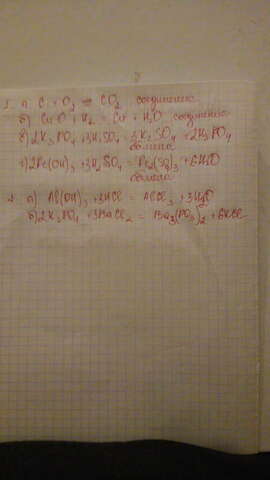 1. а) C + O₂ = CO₂ соединение
б) CuO + H₂ = Cu + H₂O соединение
в) 2K₃PO₄ + 3H₂SO₄ = 3K₂SO₄ + 2H₃PO₄
обмена
г) 2Fe(OH)₃ + 3H₂SO₄ = Fe₂(SO₄)₃ + 6H₂O
обмена
2. а) Al(OH)₃ + 3HCl = AlCl₃ + 3H₂O
б) 2K₃PO₄ + 3BaCl₂ = Ba₃(PO₄)₂ + 6KCl